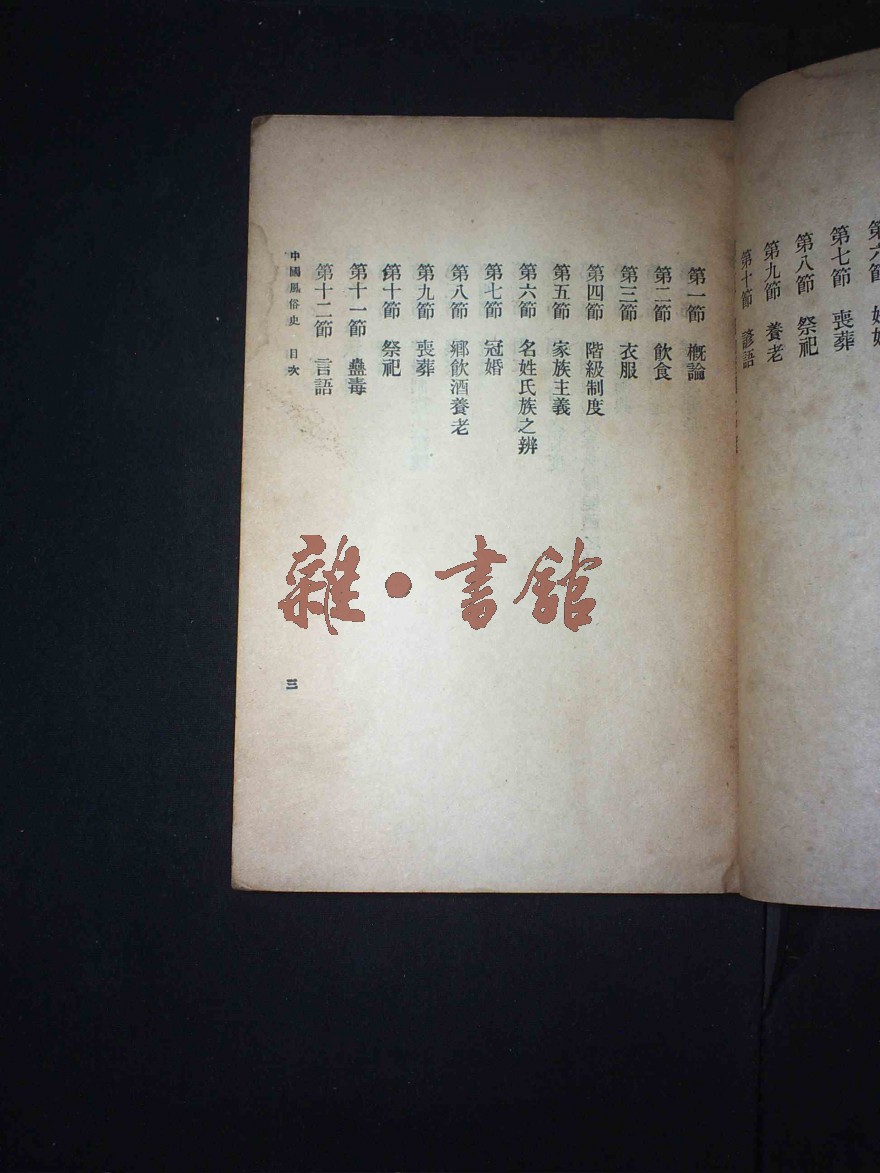 第六節
第七節　喪葬
第八節　祭祀
第九節　養老
第十節　諺語
第一節　概論
第二節　飲食
第三節　衣服
第四節　階級制度
第五節　家族主義
第六節　名姓氏族之辨
第七節　冠婚
第八節　鄉飲酒養老
第九節　喪葬
第十節　祭祀
第十一節　蠱毒
第十二節　言語
中國風俗史　目次
三
雜·書館